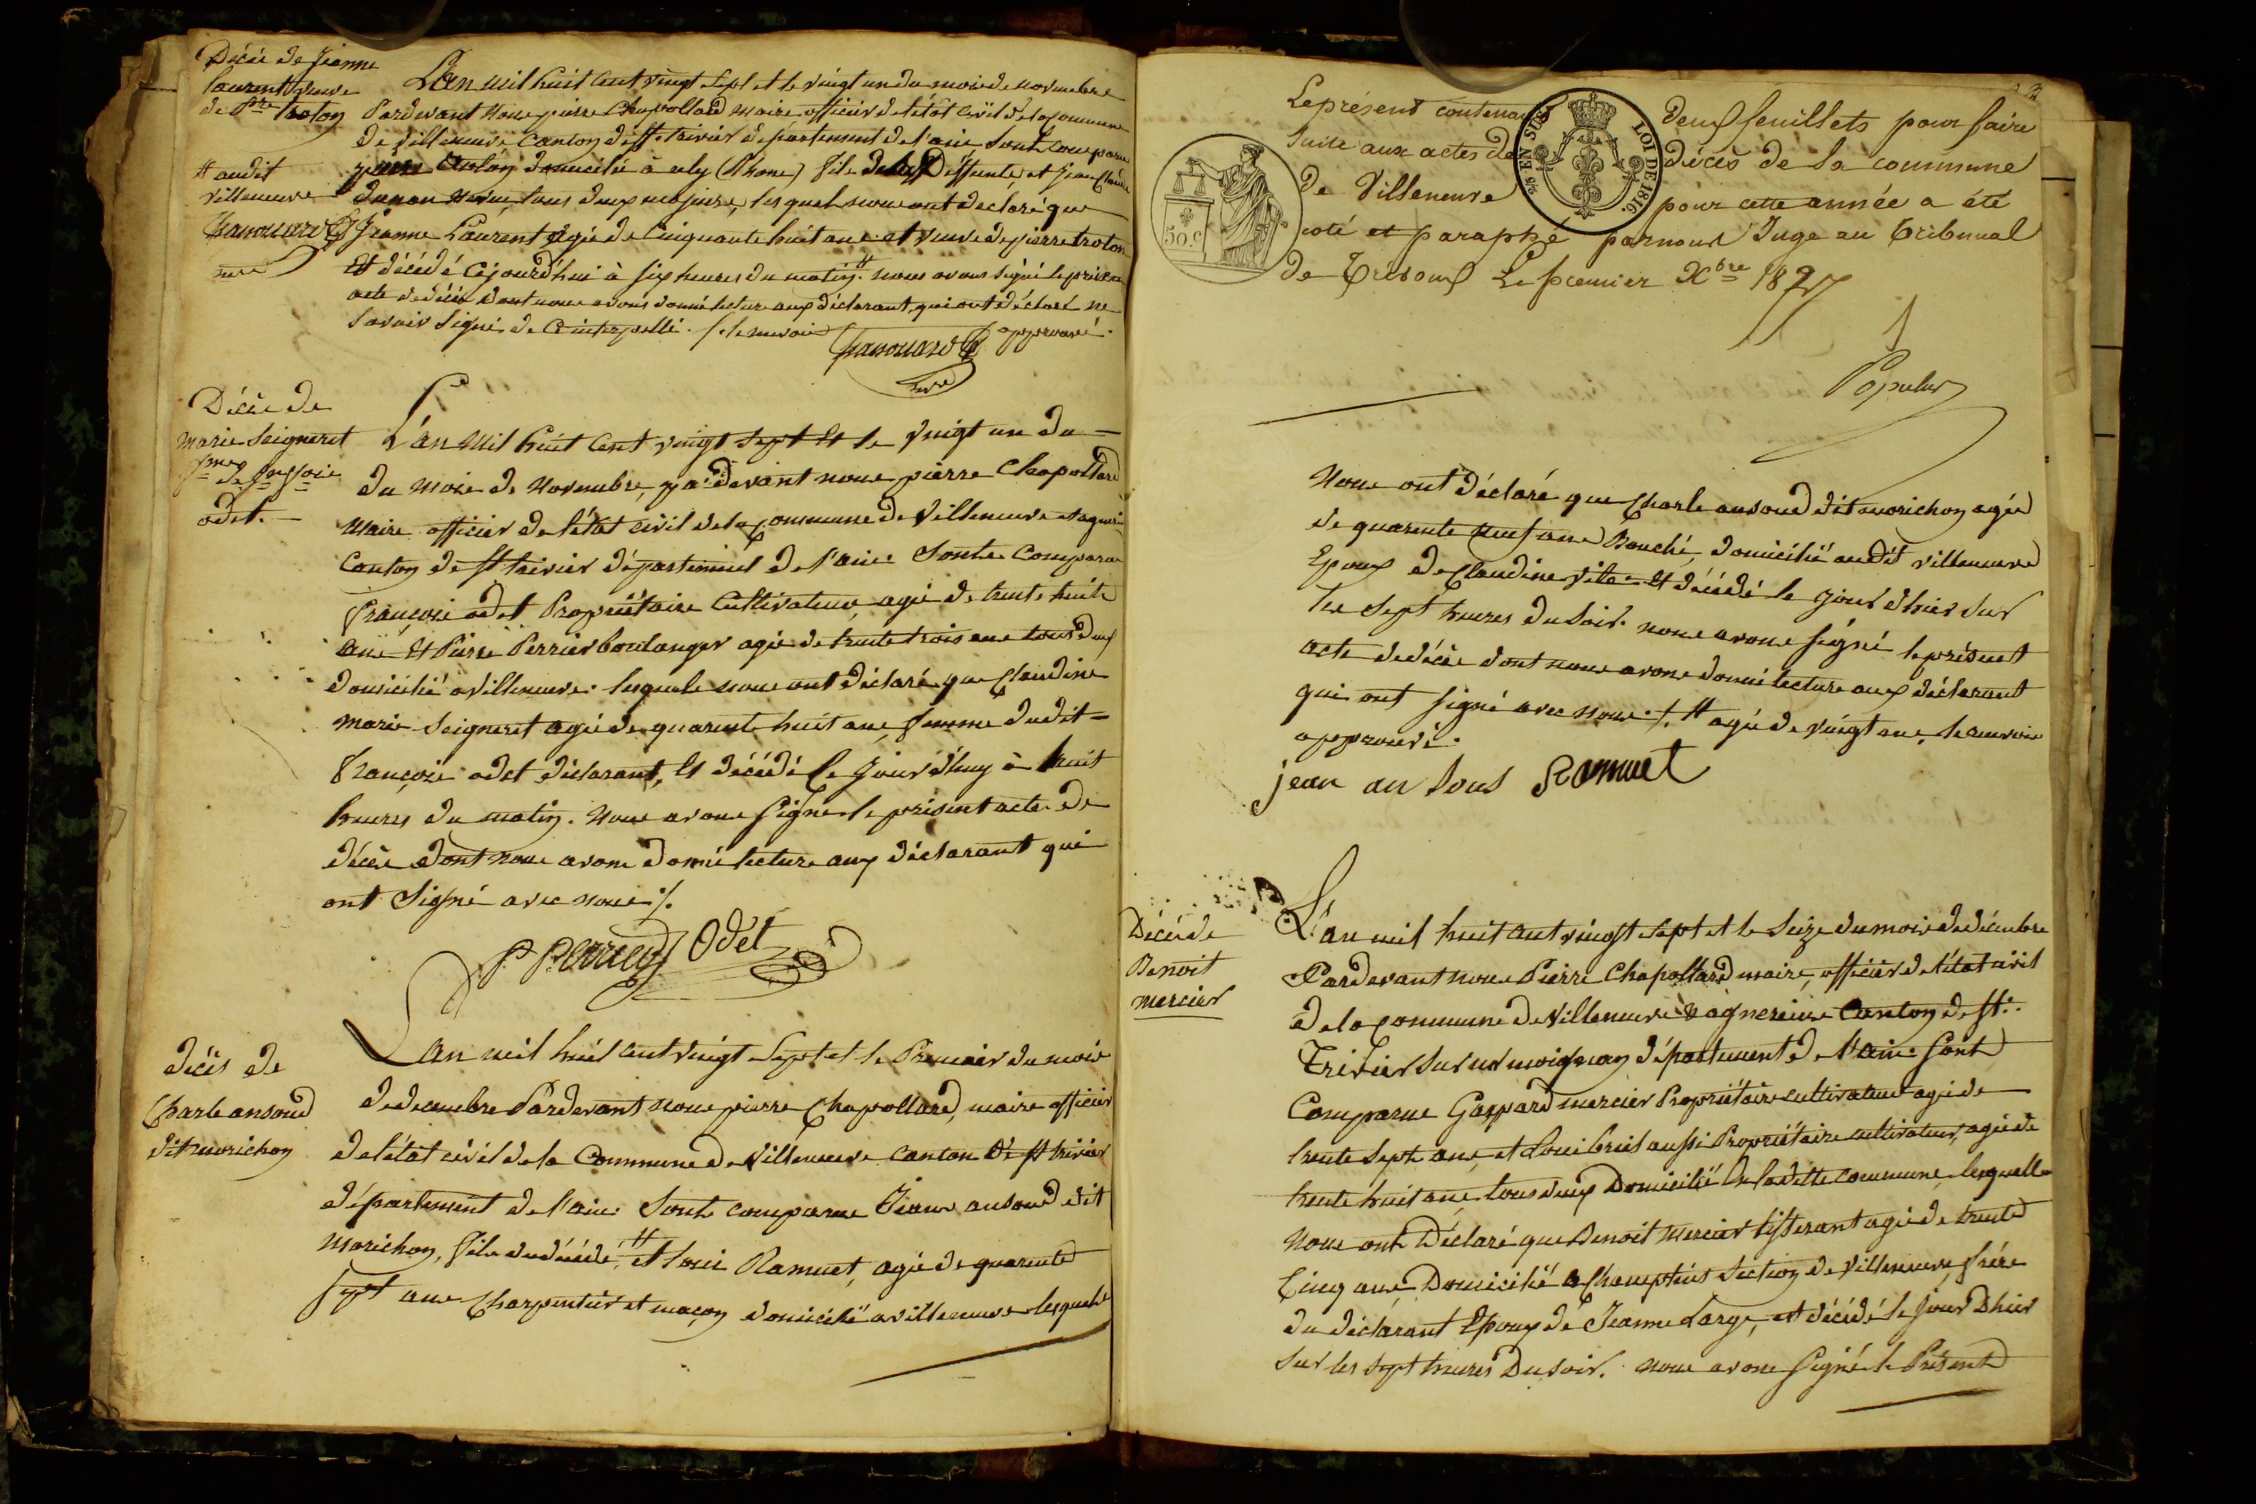 Décès de Jeanne
Laurent veuve
de Pre troton
L'an mil huit cent vingt sept et le vingt un du mois de novembre
Pardevant nous pierre Chapollard maire officier de l'état civil de la commune
de Villeneuve canton de st trivier département de l'ain sont comparu
domicilié à (Rhone) fils de la Deffunte, et Jean Claude
tous deux majeurs, lesquels nous ont déclaré que
# audit
villeneuve
Jeanne Laurent agée de cinquante huit ans et veuve de pierre troton
Et décédé cejourd'hui à six heures du matin # nous avons signé le présent
acte de décès dont nous avons donné lecture aux déclarant qui ont déclaré ne
savoir signé de ce interpellé . /. le renvoi approuvé.
Décès de
marie Seigneret
fme de fçois
odet.
L'an Mil huit Cent vingt sept Et le vingt un du
du mois de Novembre, par devant nous pierre Chapollard
Maire officier de l'état civil de la Commune de Villeneuve et agneri
Canton de st trivier département de l'ain: Sont Comparu
françois odet Propriétaire Cultivateur, agé de trente huit
ans Et Pierre Perrier boulanger agé de trente trois ans tous deux
domicilié a Villeneuve: lesquels nous ont déclaré que Claudine
Marie Seigneret agée de quarente huit ans, femme dudit
François odet déclarant, Et décédé Ce jour d'huy à huit
heures du matin. Nous avons signé le présent acte de
décès dont nous avons donné lecture aux déclarant qui
ont Signé avec nous /.
P Perrier Odet
décès de
Charle ansoud
dit morichon
L'an mil huit cent vingt sept et le Premier du mois
de decembre Pardevant nous pierre Chapollard, maire officier
de l'état civil de la Commune de Villeneuve canton de st trivier
département de l'ain: Sont comparus Jean ansoud dit
Morichon, fils du décédé, # et loui Ramuet, agé de quarente
sept ans Charpentier et maçon domicilié a villeneuve lesquels
Le présent contenant deux feuillets pour faire
suite aux actes de décès de la commune
de Villeneuve pour cette année a été
coté et paraphé par nous Juge au tribunal
de Trévoux Le premier Xbre 1827
Populus
EN SUS
LOI DE 1816.
50.c
Nous ont déclaré que Charle ansoud dit morichon agé
de quarente neuf ans Bouché, domicilié audit villeneuve
Epoux de Claudine Vite Et décédé le jour d'hier sur
les Sept heures du Soir. nous avons signé le présent
acte de décès dont nous avons donné lecture aux déclarant
qui ont signé avec nous /. # agé de vingt ans, le renvoi
approuvé.
jean an sous Ramuet
Décès de
Benoit
mercier
L'an mil huit cent vingt sept et le seize du mois de décembre
Pardevant nous Pierre Chapollard maire, officier de l'état civil
de la Commune de Villeneuve & agnereins Canton de st
Trivier sur moignan département de l'ain Sont
Comparus Gaspard mercier Propriétaire cultivateur agé de
trente sept ans, et Loui bruis aussi Propriétaire cultivateur, agé de
trente huit ans, tous deux Domicilié En la ditte commune lesquelle
Nous ont Déclaré que Benoit Mercier tisserant agé de trente
Cinq ans Domicilié a Chaupteins Section de Villeneuve, frére
du déclarant Epoux de Jeanne Large, et décédé le jour Dhier
sur les sept heures Du soir. nous avons signé le Présent